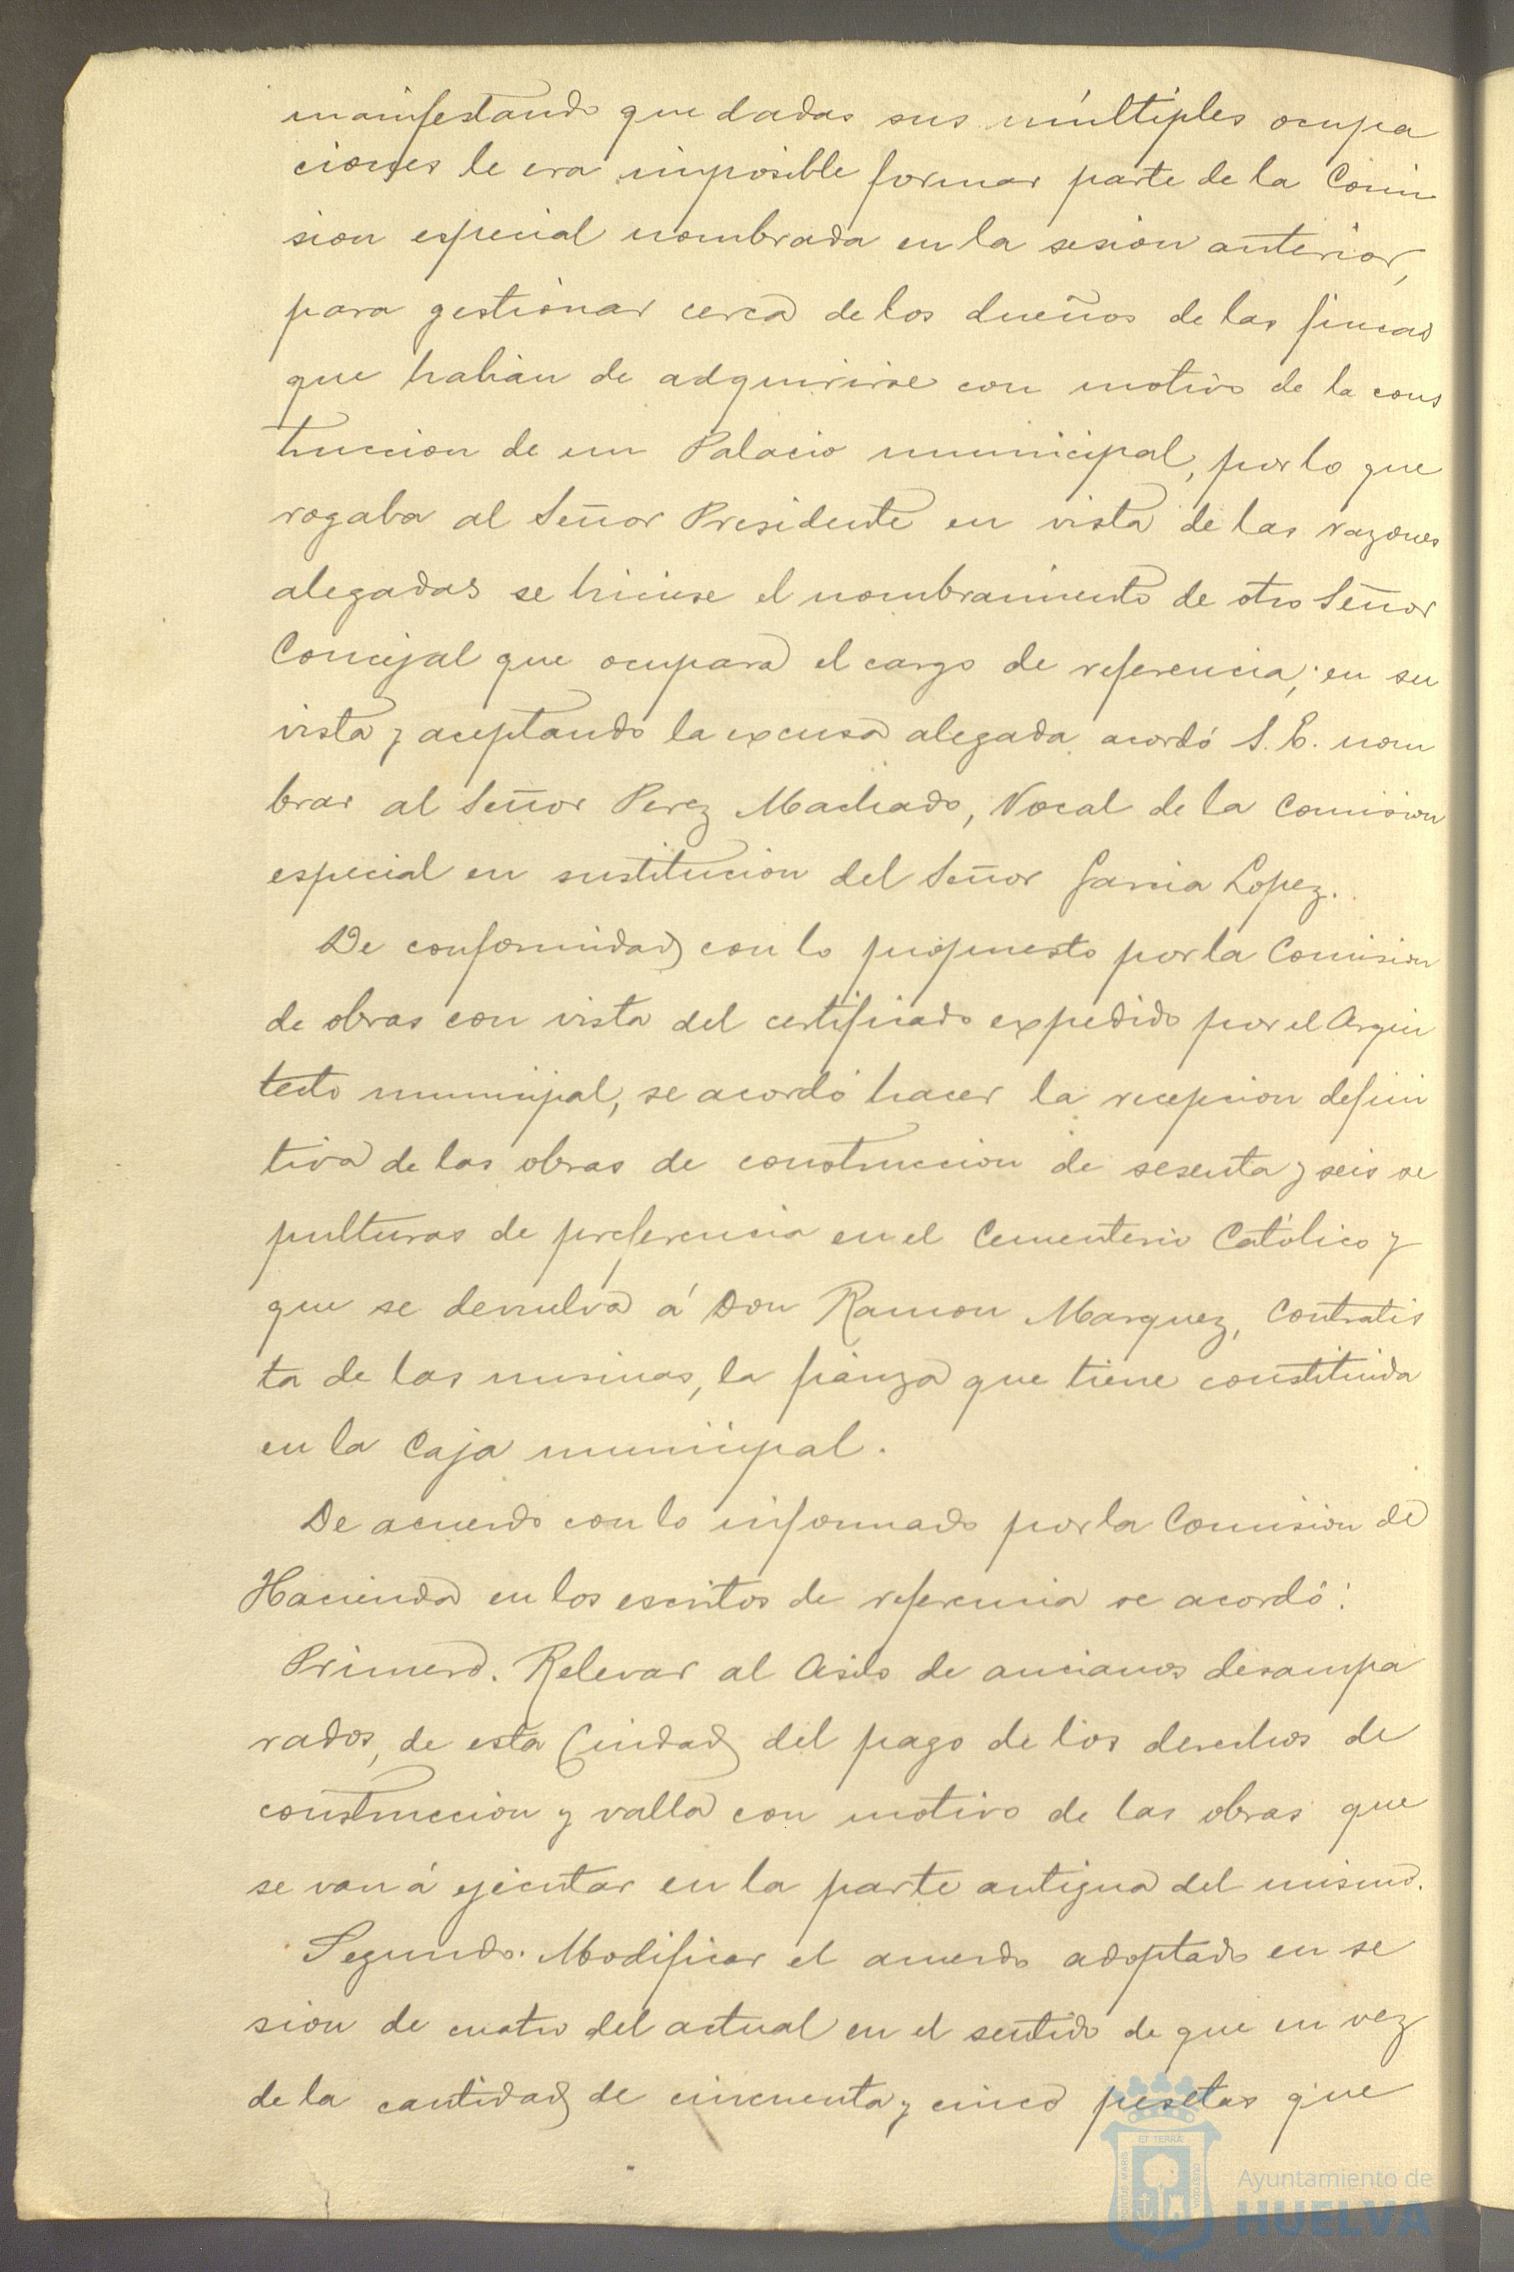 manifestando que dadas sus múltiples ocupa
ciones le era imposible formar parte de la Comi
sion especial nombrada en la sesion anterior,
para gestionar cerca de los dueños de las fincas
que habian de adquirirse con motivo de la cons
truccion de un Palacio municipal, por lo que
rogaba al Señor Presidente en vista de las razones
alegadas se hiciese el nombramiento de otro Señor
Concejal que ocupara el cargo de referencia; en su
vista y aceptando la excusa alegada acordó S. E. nom
brar al Señor Perez Machado, Vocal de la Comision
especial en sustitucion del Señor Garcia Lopez.
De conformidad con lo propuesto por la Comision
de obras con vista del certificado expedido por el Arqui
tecto municipal, se acordó hacer la recepcion defini
tiva de las obras de construccion de sesenta y seis se
pulturas de preferencia en el Cementerio Católico y
que se devuelva á Don Ramon Marquez, Contratis
ta de las mismas, la fianza que tiene constituida
en la Caja municipal.
De acuerdo con lo informado por la Comision de
Hacienda en los escritos de referencia se acordó:
Primero. Relevar al Asilo de ancianos desampa
rados, de esta Ciudad del pago de los derechos de
construccion y valla con motivo de las obras que
se van á ejecutar en la parte antigua del mismo.
Segundo. Modificar el acuerdo adoptado en se
sion de cuatro del actual en el sentido de que en vez
de la cantidad de cincuenta y cinco pesetas que
ET TERRÆ
PORTUS MARIS
CUSTODIA
Ayuntamiento de
HUELVA